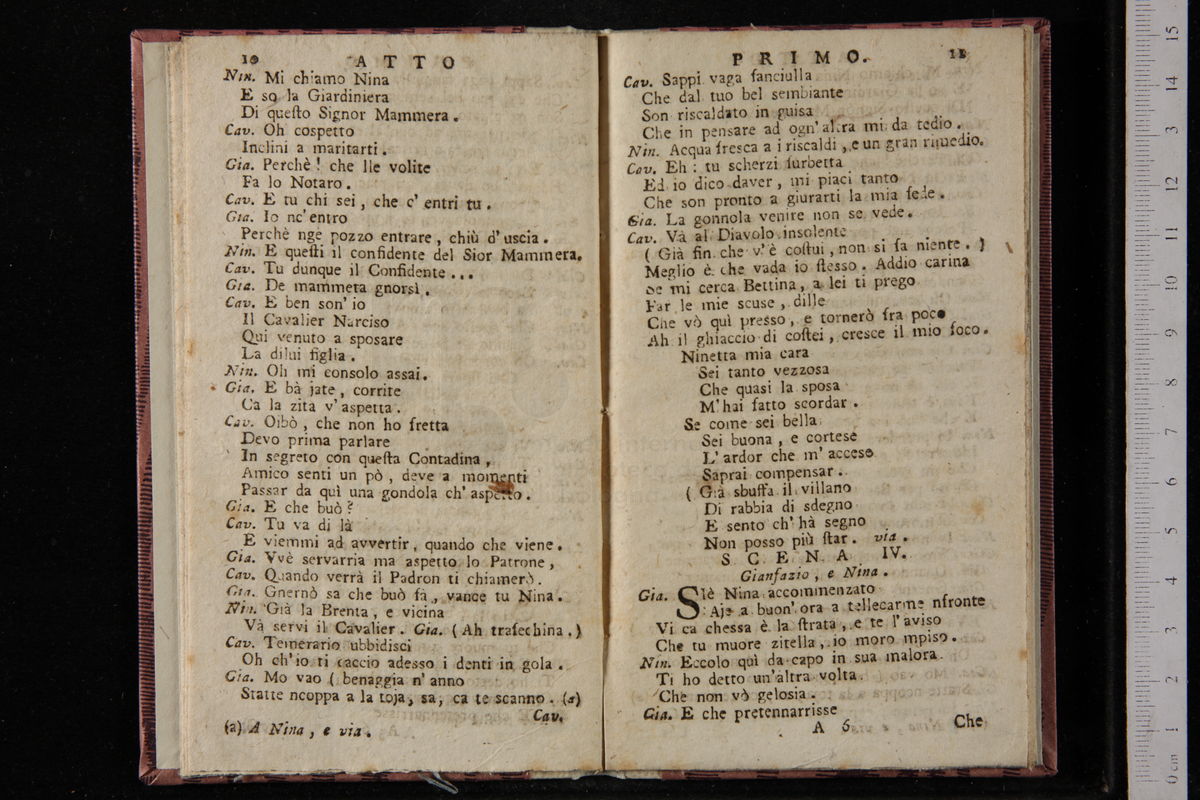 10 ATTO
Nin. Mi chiamo Nina
E so la Giardiniera
Di questo Signor Mammera.
Cav. Oh cospetto
Inclini a maritarti.
Gia. Perchè! che lle volite
Fa lo Notaro.
Cav. E tu chi sei, che c' entri tu.
Gia. Io nc'entro
Perchè nge pozzo entrare, chiù d'uscia.
Nin. E questi il confidente del Sior Mammera.
Cav. Tu dunque il Confidente...
Gia. De mammeta gnorsì.
Cav. E ben son' io
Il Cavalier Narciso
Qui venuto a sposare
La dilui figlia.
Nin. Oh mi consolo assai.
Gia. E bà jate, corrite
Ca la zita v' aspetta.
Cav. Oibò, che non ho fretta
Devo prima parlare
In segreto con questa Contadina,
Amico senti un pò, deve a momenti
Passar da quì una gondola ch' aspetto.
Gia. E che buò?
Cav. Tu va di là
E viemmi ad avvertir, quando che viene.
Gia. Vvè servarria ma aspetto lo Patrone,
Cav. Quando verrà il Padron ti chiamerò.
Gia. Gnernò sa che buò fà, vance tu Nina.
Nin. Già la Brenta, e vicina
Và servi il Cavalier. Gia. (Ah trafechina.)
Cav. Temerario ubbidisci
Oh ch'io ti caccio adesso i denti in gola.
Gia. Mo vao (benaggia n' anno
Statte ncoppa a la toja, sa, ca te scanno. (a)
Cav.
(a) A Nina, e via.
PRIMO. 11
Cav. Sappi vaga fanciulla
Che dal tuo bel sembiante
Son riscaldato in guisa
Che in pensare ad ogn'altra mi da tedio.
Nin. Acqua fresca a i riscaldi, e un gran rimedio.
Cav. Eh: tu scherzi furbetta
Ed io dico daver, mi piaci tanto
Che son pronto a giurarti la mia fede.
Gia. La gonnola venire non se vede.
Cav. Và al Diavolo insolente
(Già fin che v' è costui, non si fa niente.)
Meglio è che vada io stesso. Addio carina
Se mi cerca Bettina, a lei ti prego
Far le mie scuse, dille
Che vò quì presso, e tornerò fra poco
Ah il ghiaccio di costei, cresce il mio foco.
Ninetta mia cara
Sei tanto vezzosa
Che quasi la sposa
M'hai fatto scordar.
Se come sei bella
Sei buona, e cortese
L'ardor che m' accese
Saprai compensar.
(Già sbuffa il villano
Di rabbia di sdegno
E sento ch' hà segno
Non posso più star. via.
SCENA IV.
Gianfazio, e Nina.
Gia. Siè Nina accommenzato
Aje a buon' ora a tellecarme nfronte
Vi ca chessa è la strata, e te l'aviso
Che tu muore zitella, io moro mpiso.
Nin. Eccolo quì da capo in sua malora
Ti ho detto un'altra volta
Che non vò gelosia.
Gia. E che pretennarrisse
A 6 Che